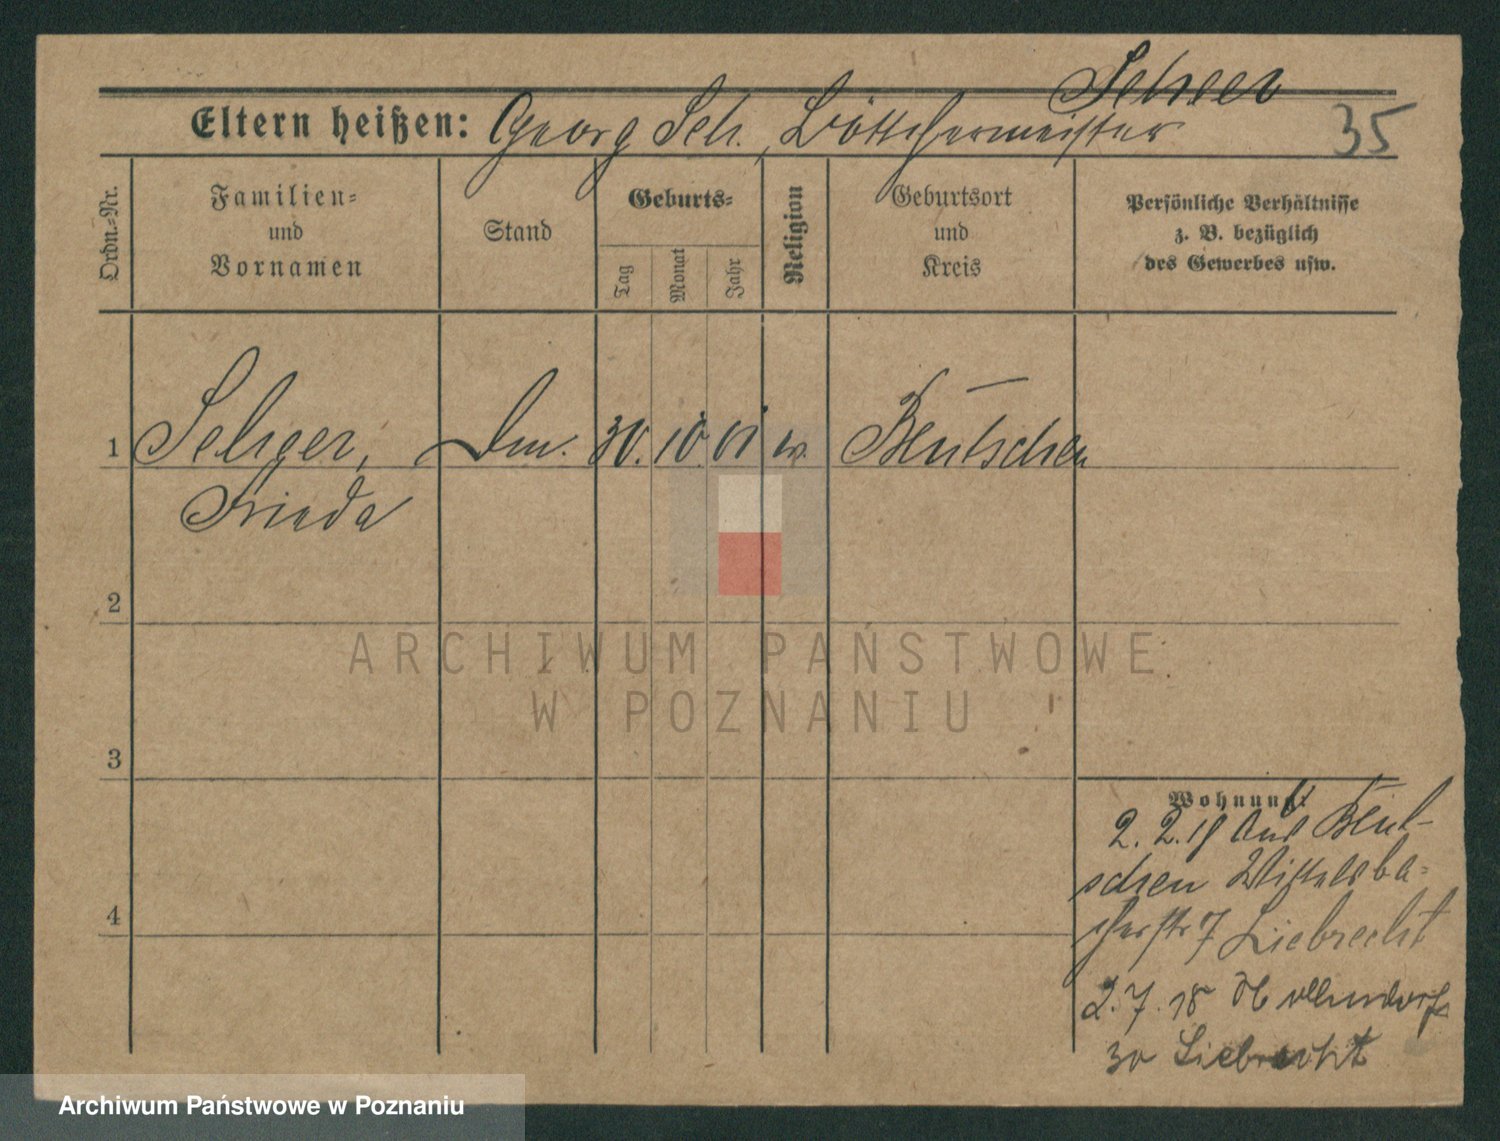 Scheer
Eltern heißen: Georg Sch., Böttchermeister
35
Ordn.-Nr.
Familien-
und
Vornamen
Stand
Geburts-
Tag
Monat
Jahr
Religion
Geburtsort
und
Kreis
Persönliche Verhältnisse
z. B. bezüglich
des Gewerbes usw.
1
Scheer,
30. 10. 01
Bentschen
Frieda
2
3
4
Wohnung:
2. 2. 18 aus Bent-
schen Wittelsba-
cherstr 7 Liebrecht
2. 7. 18
30 Liebrecht
ARCHIWUM PAŃSTWOWE
W POZNANIU
Archiwum Państwowe w Poznaniu